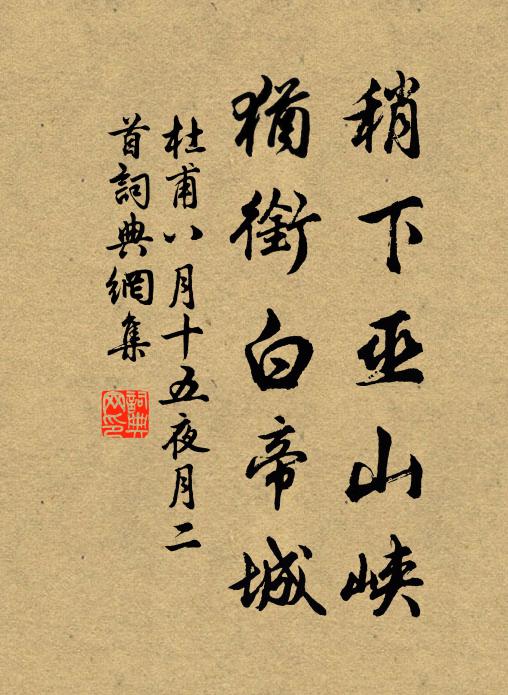 稍下巫山峽
猶銜白帝城
杜甫八月十五夜月二
首詞典網集
詞典
网印